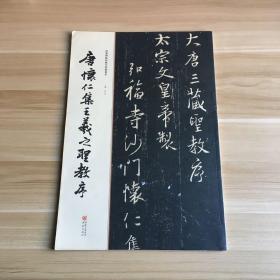 大唐三藏聖教序
太宗文皇帝製
弘福寺沙門懷仁集
唐懷仁集王羲之聖教序